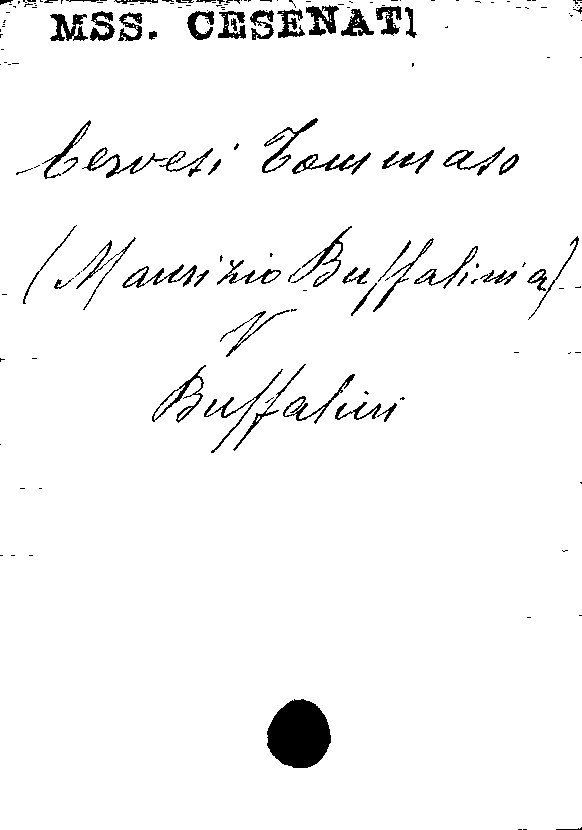 MSS. CESENATI
Cervesi Tommaso
(Maurizio Buffalinia)
V
Buffalini